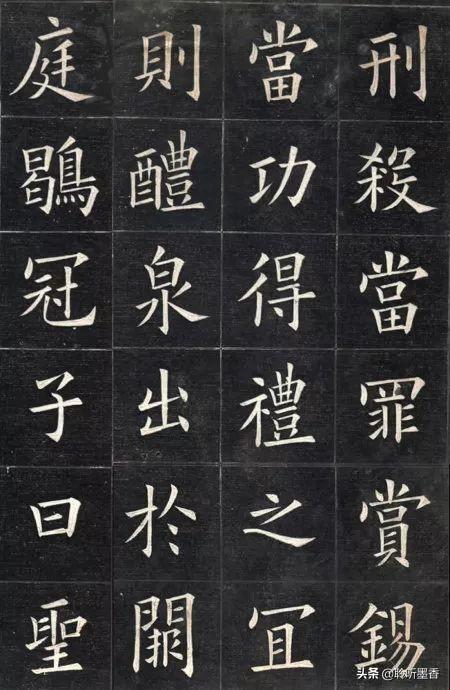 刑殺當罪賞錫
當功得禮之冝
則醴泉出於闕
庭鶡冠子曰聖
头条 @聆听墨香